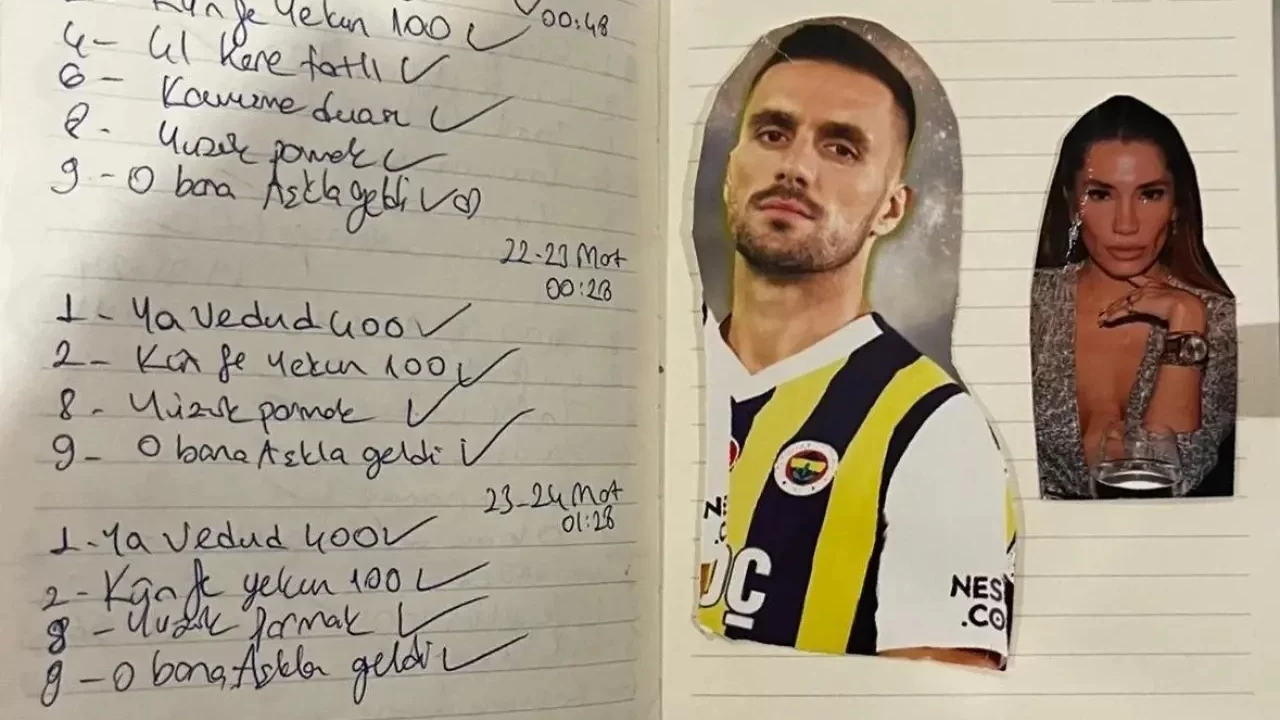 Kün fe Yekun 100
00:48
4- 41 Kere fatlı
6- Kavuşme duası
8- Yüzük parmak
9- O bana Aşkla geldi
22-23 Mat
00:28
1- Ya Vedud 400
2- Kün fe yekun 100
8- Yüzük parmak
9- O bana Aşkla geldi
23-24 Mat
01:28
1- Ya Vedud 400
2- Kün fe yekun 100
8- Yüzük parmak
9- O bana Aşkla geldi
NES
.CO